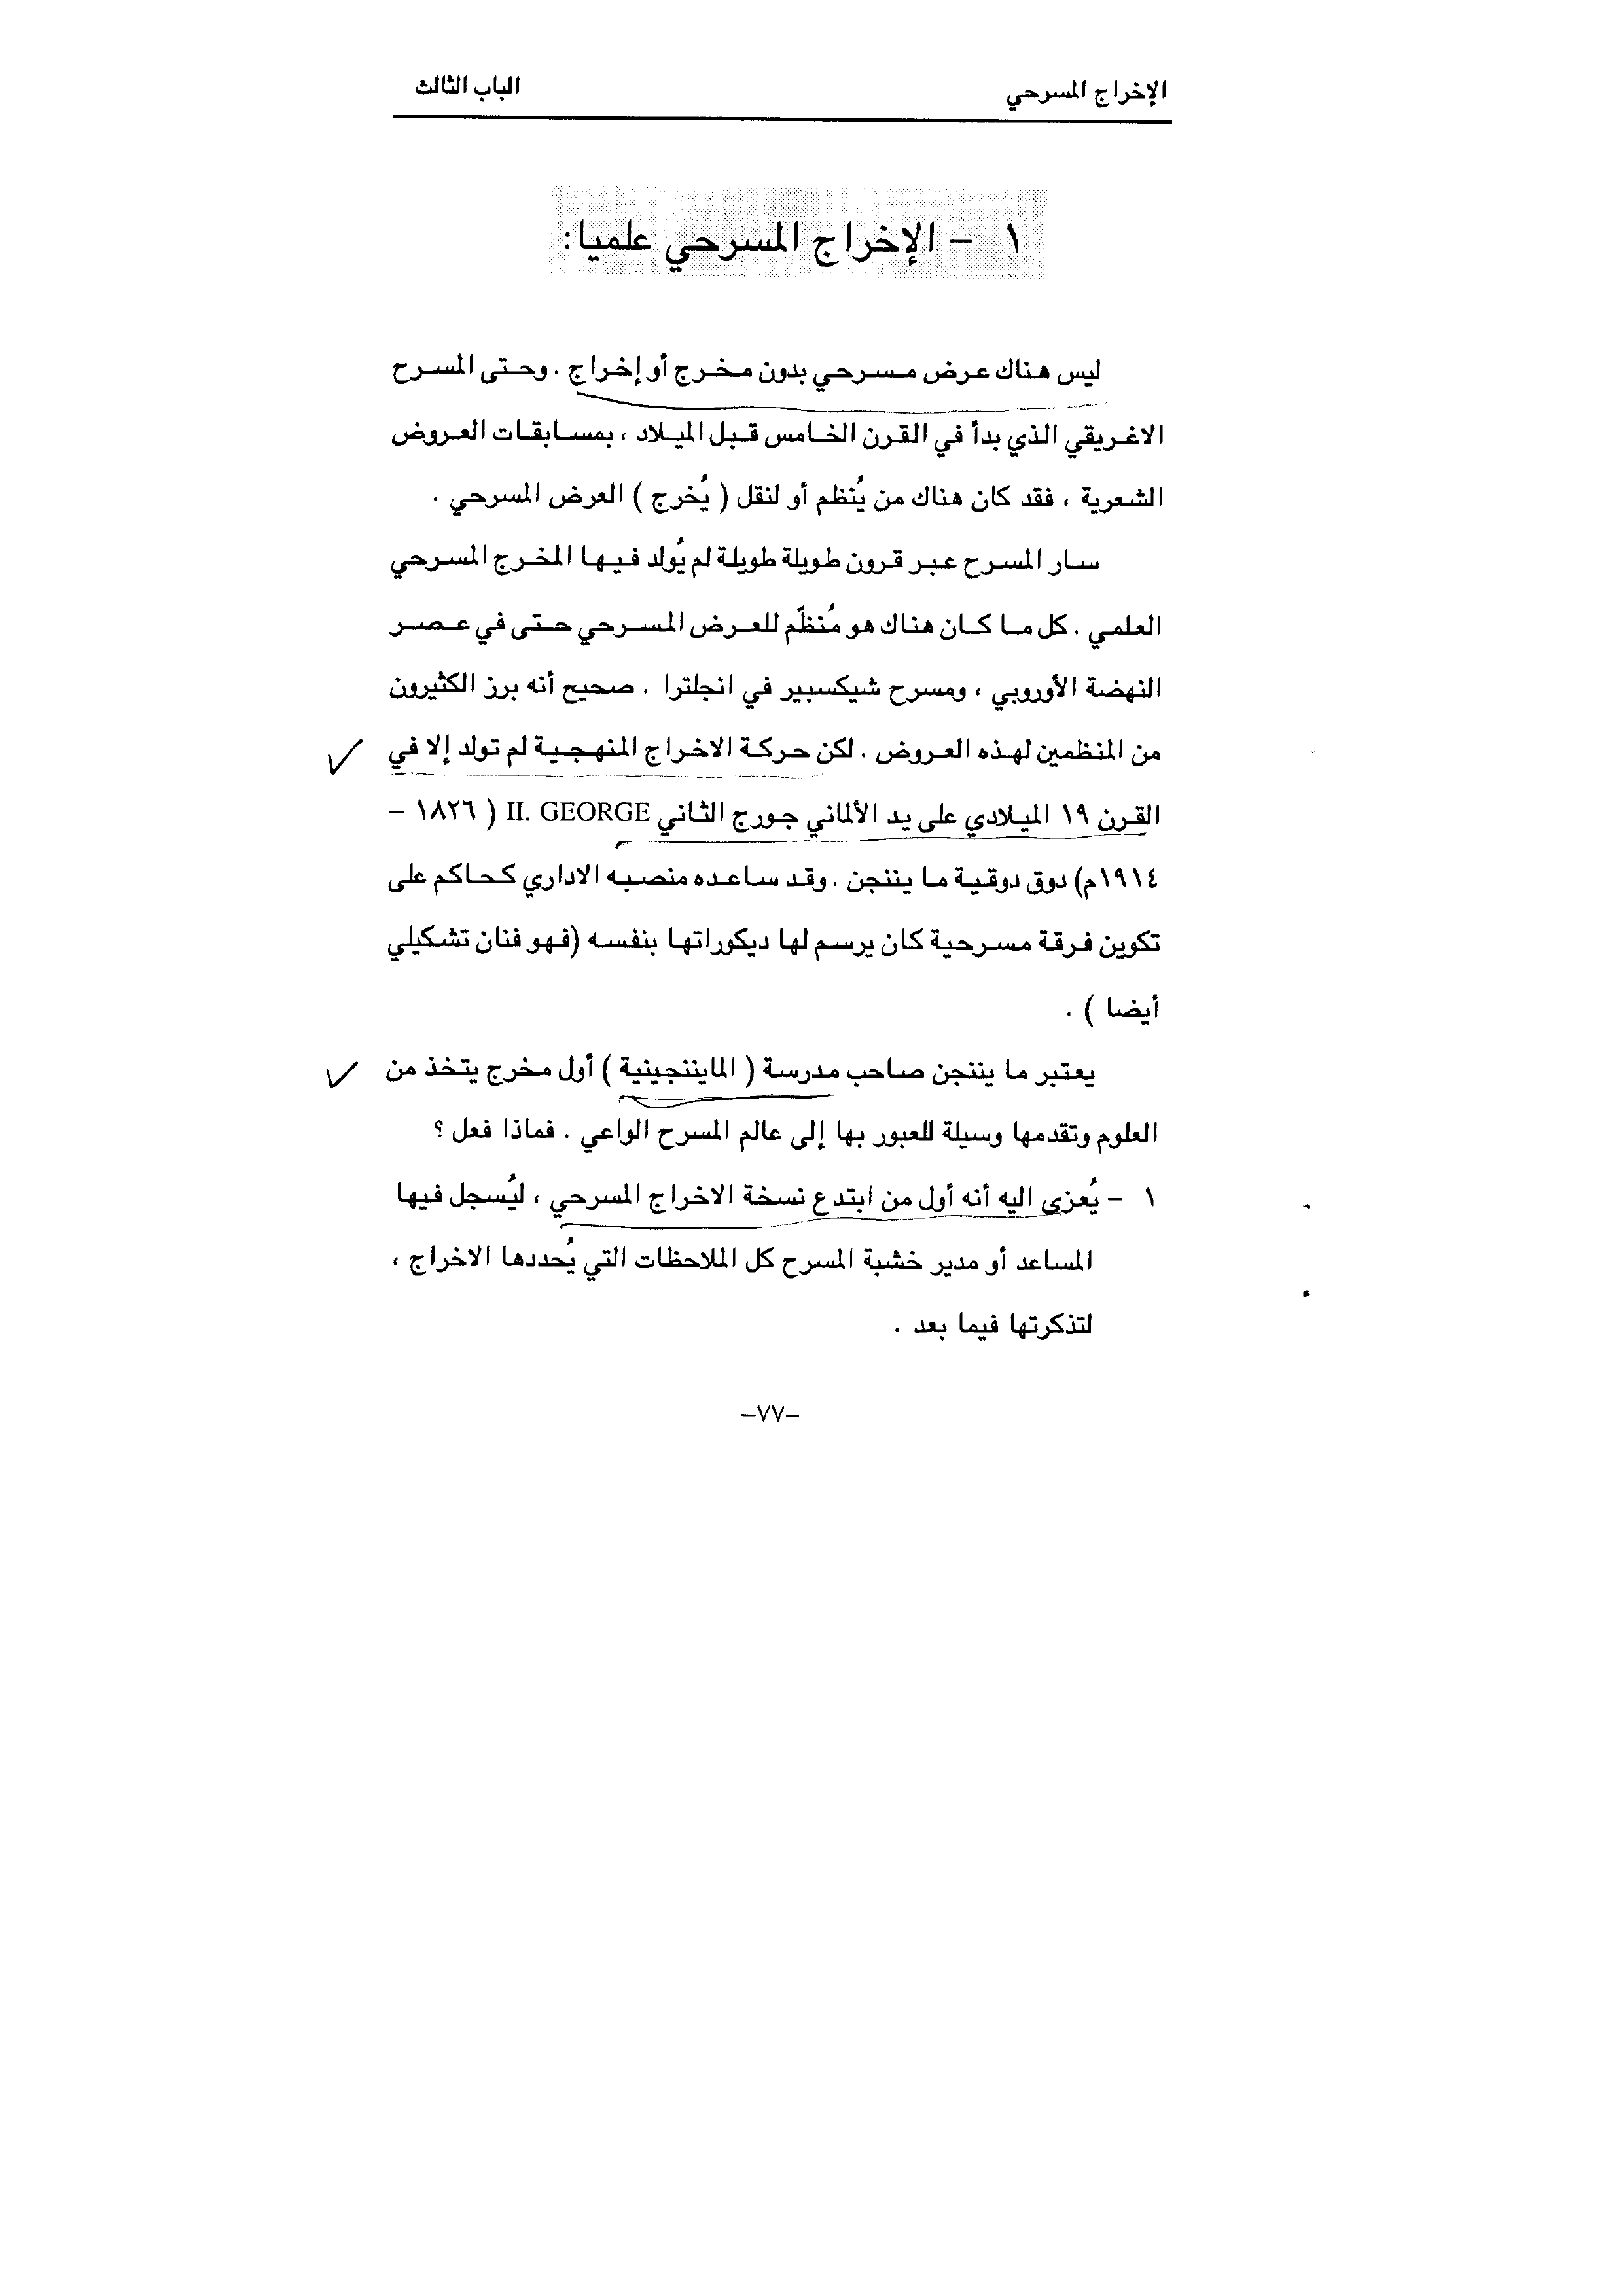 الإخراج المسرحي
الباب الثالث
١ - الإخراج المسرحي علميا:
ليس هناك عرض مسرحي بدون مخرج أو إخراج . وحتى المسرح
الاغريقي الذي بدأ في القرن الخامس قبل الميلاد ، بمسابقات العروض
الشعرية ، فقد كان هناك من يُنظم أو لنقل ( يُخرج ) العرض المسرحي .
سار المسرح عبر قرون طويلة طويلة لم يُولد فيها المخرج المسرحي
العلمي . كل ما كان هناك هو مُنظّم للعرض المسرحي حتى في عصر
النهضة الأوروبي ، ومسرح شيكسبير في انجلترا . صحيح أنه برز الكثيرون
من المنظمين لهذه العروض . لكن حركة الاخراج المنهجية لم تولد إلا في
القرن ١٩ الميلادي على يد الألماني جورج الثاني II. GEORGE ( ١٨٢٦ –
١٩١٤م) دوق دوقية ما يننجن . وقد ساعده منصبه الاداري كحاكم على
تكوين فرقة مسرحية كان يرسم لها ديكوراتها بنفسه (فهو فنان تشكيلي
أيضا ) .
يعتبر ما يننجن صاحب مدرسة ( الماينجينية ) أول مخرج يتخذ من
العلوم وتقدمها وسيلة للعبور بها إلى عالم المسرح الواعي . فماذا فعل ؟
١ - يُعزى اليه أنه أول من ابتدع نسخة الاخراج المسرحي ، ليُسجل فيها
المساعد أو مدير خشبة المسرح كل الملاحظات التي يُحددها الاخراج ،
لتذكرتها فيما بعد .
–٧٧–